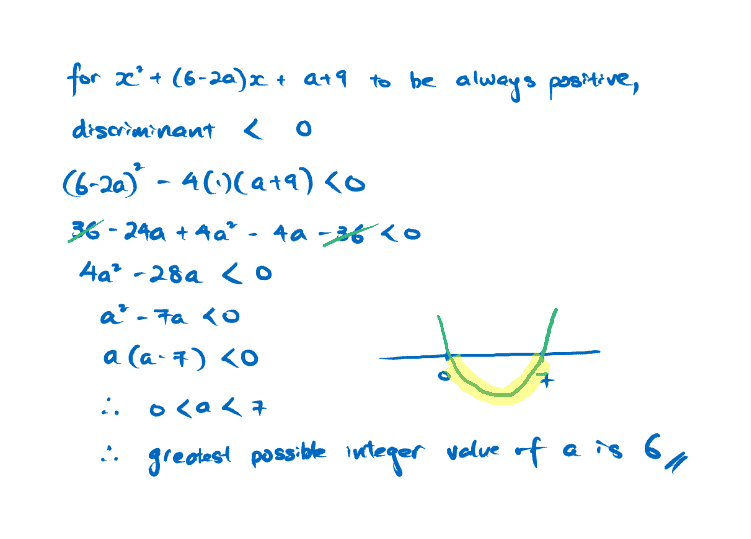 for x² + (6-2a)x + a+9 to be always positive,
discriminant < 0
(6-2a)² - 4(1)(a+9) < 0
36 - 24a + 4a² - 4a - 36 < 0
4a² - 28a < 0
a² - 7a < 0
a(a-7) < 0
0 7
∴ 0 < a < 7
∴ greatest possible integer value of a is 6